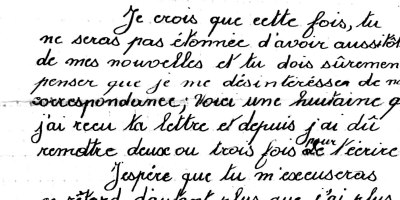 Je crois que cette fois, tu
ne seras pas étonnée d'avoir aussitôt
de mes nouvelles et tu dois sûremen
penser que je me désintéresse de
correspondance ; Voici une huitaine q
j'ai recu ta lettre et depuis j'ai dû
remettre deux ou trois fois pour t'écrire
J'espère que tu m'excuseras
ce retard d'autant plus que j'ai plus